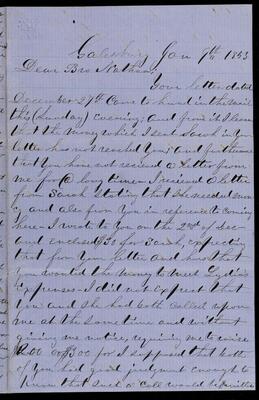 Galesburg Jan 9th 1853
Dear Bro Nathan
Your letter dated
December 27th Came to hand in the mail
this (Sunday) Evening; and from it I learn
that the money which I sent Sarah in your
letter has not reached You; and furthermore
that You have not recieved a letter from
me for a long time - I recieved a letter
from Sarah Stating that She needed money
and also from You in reference to coming
here - I wrote to You on the 2nd of Dec
and enclosed $30 for Sarah, expecting
that from Your letter and hers that
you wanted the money to meet
expenses - I did not expect that
You and She had both called upon
me at the same time and without
giving me notice, requiring me to raise
$200 or $300 for I supposed that both
of You had good judgment enough to
know that such a call would be